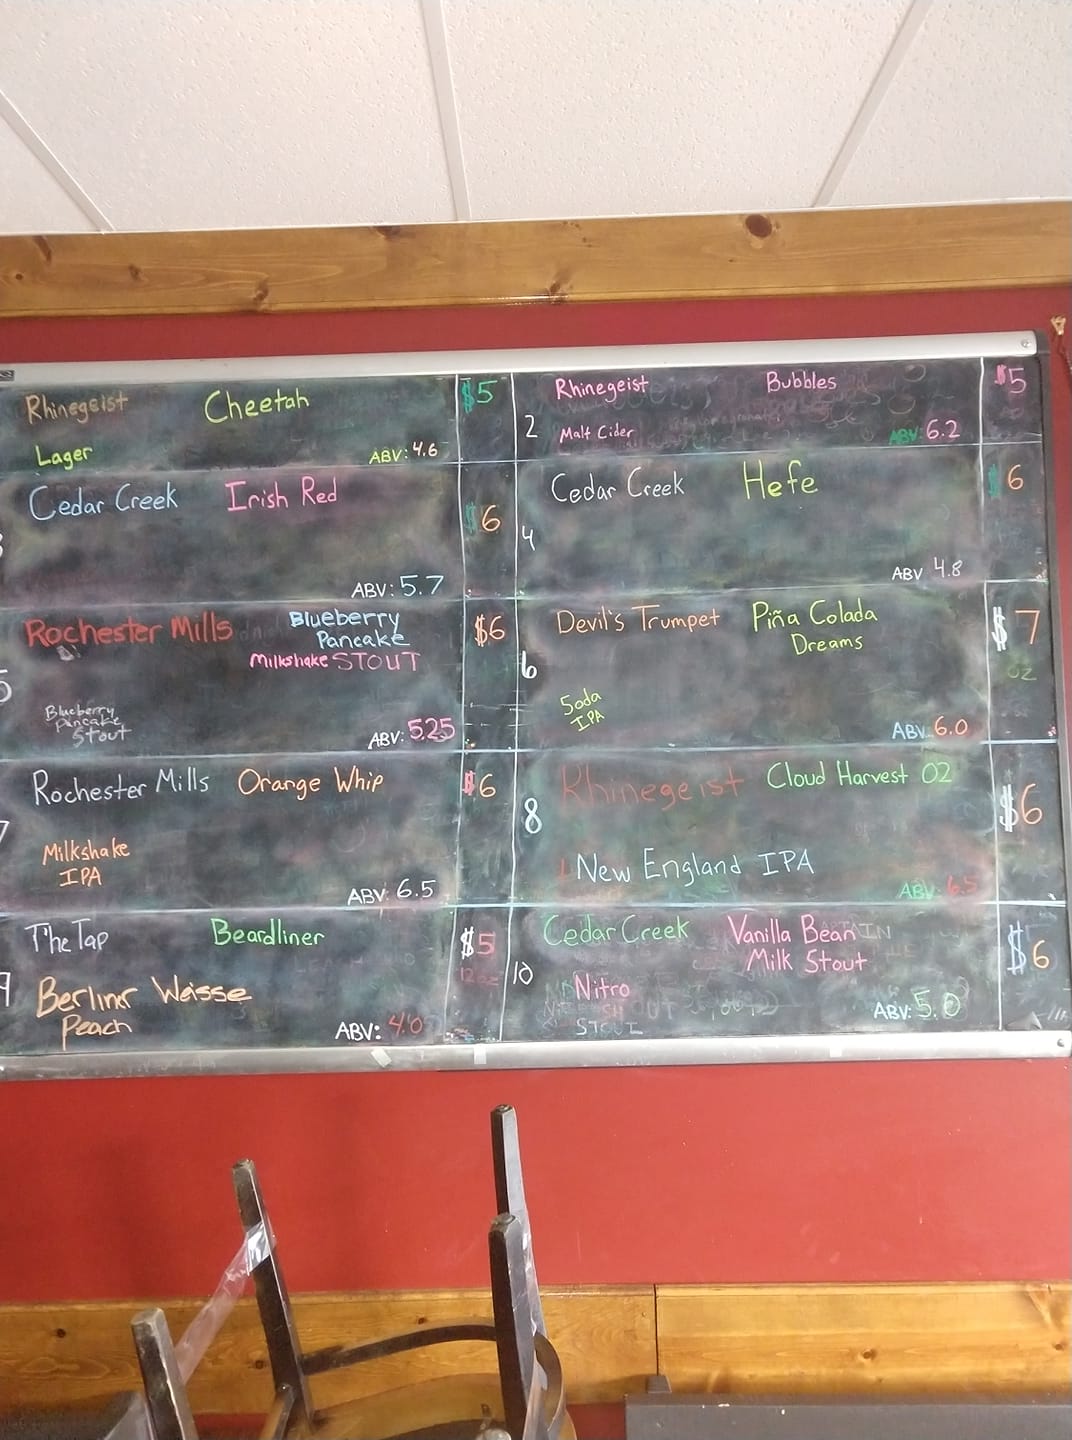 Rhinegeist Cheetah $5
Lager ABV: 4.6
2 Rhinegeist Bubbles $5
Malt Cider ABV: 6.2
Cedar Creek Irish Red $6
ABV: 5.7
4 Cedar Creek Hefe $6
ABV 4.8
5 Rochester Mills Blueberry $6
Pancake
Milkshake STOUT
Blueberry
Pancake
Stout ABV: 5.25
6 Devil's Trumpet Piña Colada $7
Dreams
OZ
Soda
IPA ABV: 6.0
7 Rochester Mills Orange Whip $6
Milkshake
IPA ABV: 6.5
8 Rhinegeist Cloud Harvest 02 $6
New England IPA
ABV: 6.5
9 The Tap Beardliner $5
12oz
Berliner Weisse
Peach ABV: 4.0
10 Cedar Creek Vanilla Bean $6
Milk Stout
Nitro
STOUT ABV: 5.0